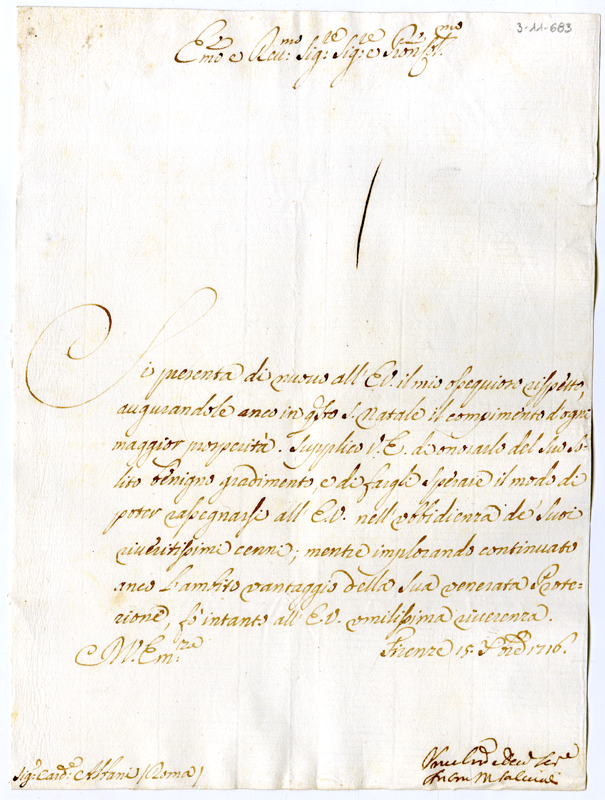 3-11-683
Em.o e Reu.mo Sig.re Sig.re e Pron Col.mo
Si presenta di nuouo all'E.V. il mio ossequioso rispetto,
augurandole anco in q.sto S. Natale il compimento d'ogni
maggior prosperità. Supplico V.E. di onorarlo del suo so-
lito benigno gradimento e di fargli sperare il modo di
poter rassegnarsi all'E.V. nell'ubbidienza de' suoi
riueritissimi cenni; mentre implorando continuato
anco l'ambito vantaggio della sua venerata Prote-
zione, fò intanto all'E.V. umilissima riuerenza.
V. Em.za Firenze 15. Xbre 1716.
Sig.r Card.e Albani (Roma)
Vm.e Diu.